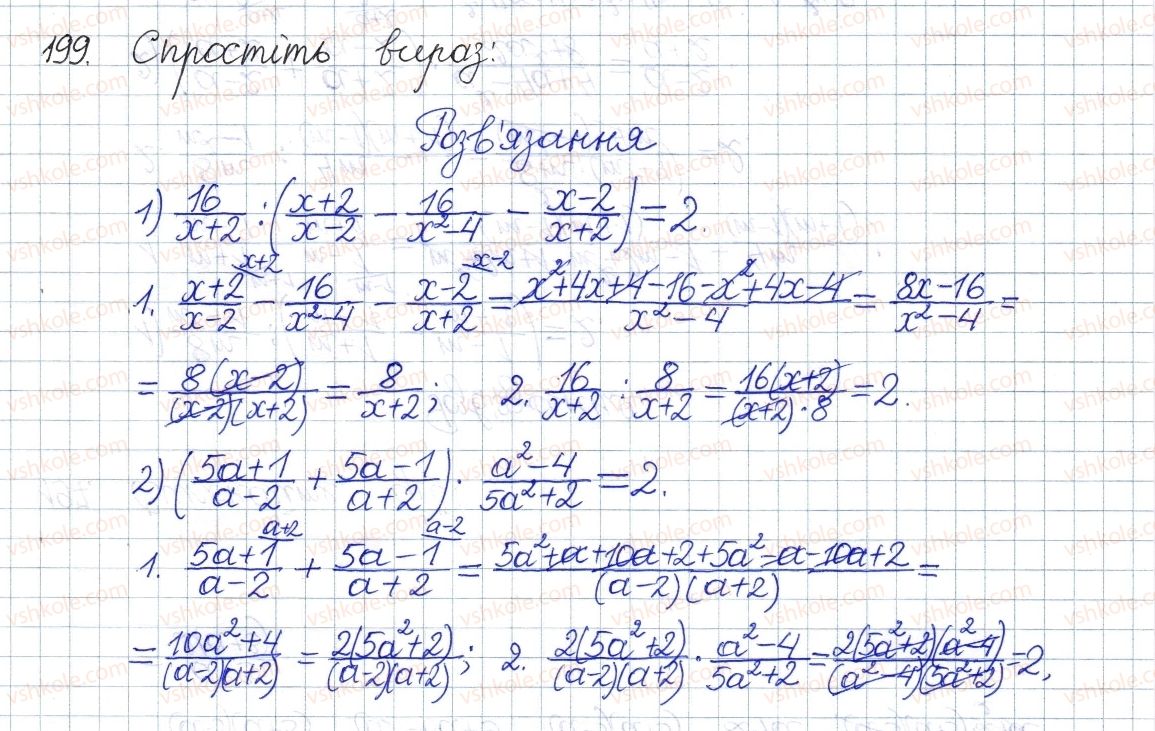 199. Спростіть вираз:
Розв'язання
1) 16/(x+2) : ((x+2)/(x-2) - 16/(x²-4) - (x-2)/(x+2)) = 2.
1. (x+2)/(x-2) ^(x+2) - 16/(x²-4) - (x-2)/(x+2) ^(x-2) = (x²+4x+4-16-x²+4x-4)/(x²-4) = (8x-16)/(x²-4) =
= 8(x-2)/((x-2)(x+2)) = 8/(x+2); 2. 16/(x+2) : 8/(x+2) = 16(x+2)/((x+2)·8) = 2.
2) ((5a+1)/(a-2) + (5a-1)/(a+2)) · (a²-4)/(5a²+2) = 2.
1. (5a+1)/(a-2) ^(a+2) + (5a-1)/(a+2) ^(a-2) = (5a²+a+10a+2+5a²-a-10a+2)/((a-2)(a+2)) =
= (10a²+4)/((a-2)(a+2)) = 2(5a²+2)/((a-2)(a+2)); 2. 2(5a²+2)/((a-2)(a+2)) · (a²-4)/(5a²+2) = 2(5a²+2)(a²-4)/((a²-4)(5a²+2)) = 2.